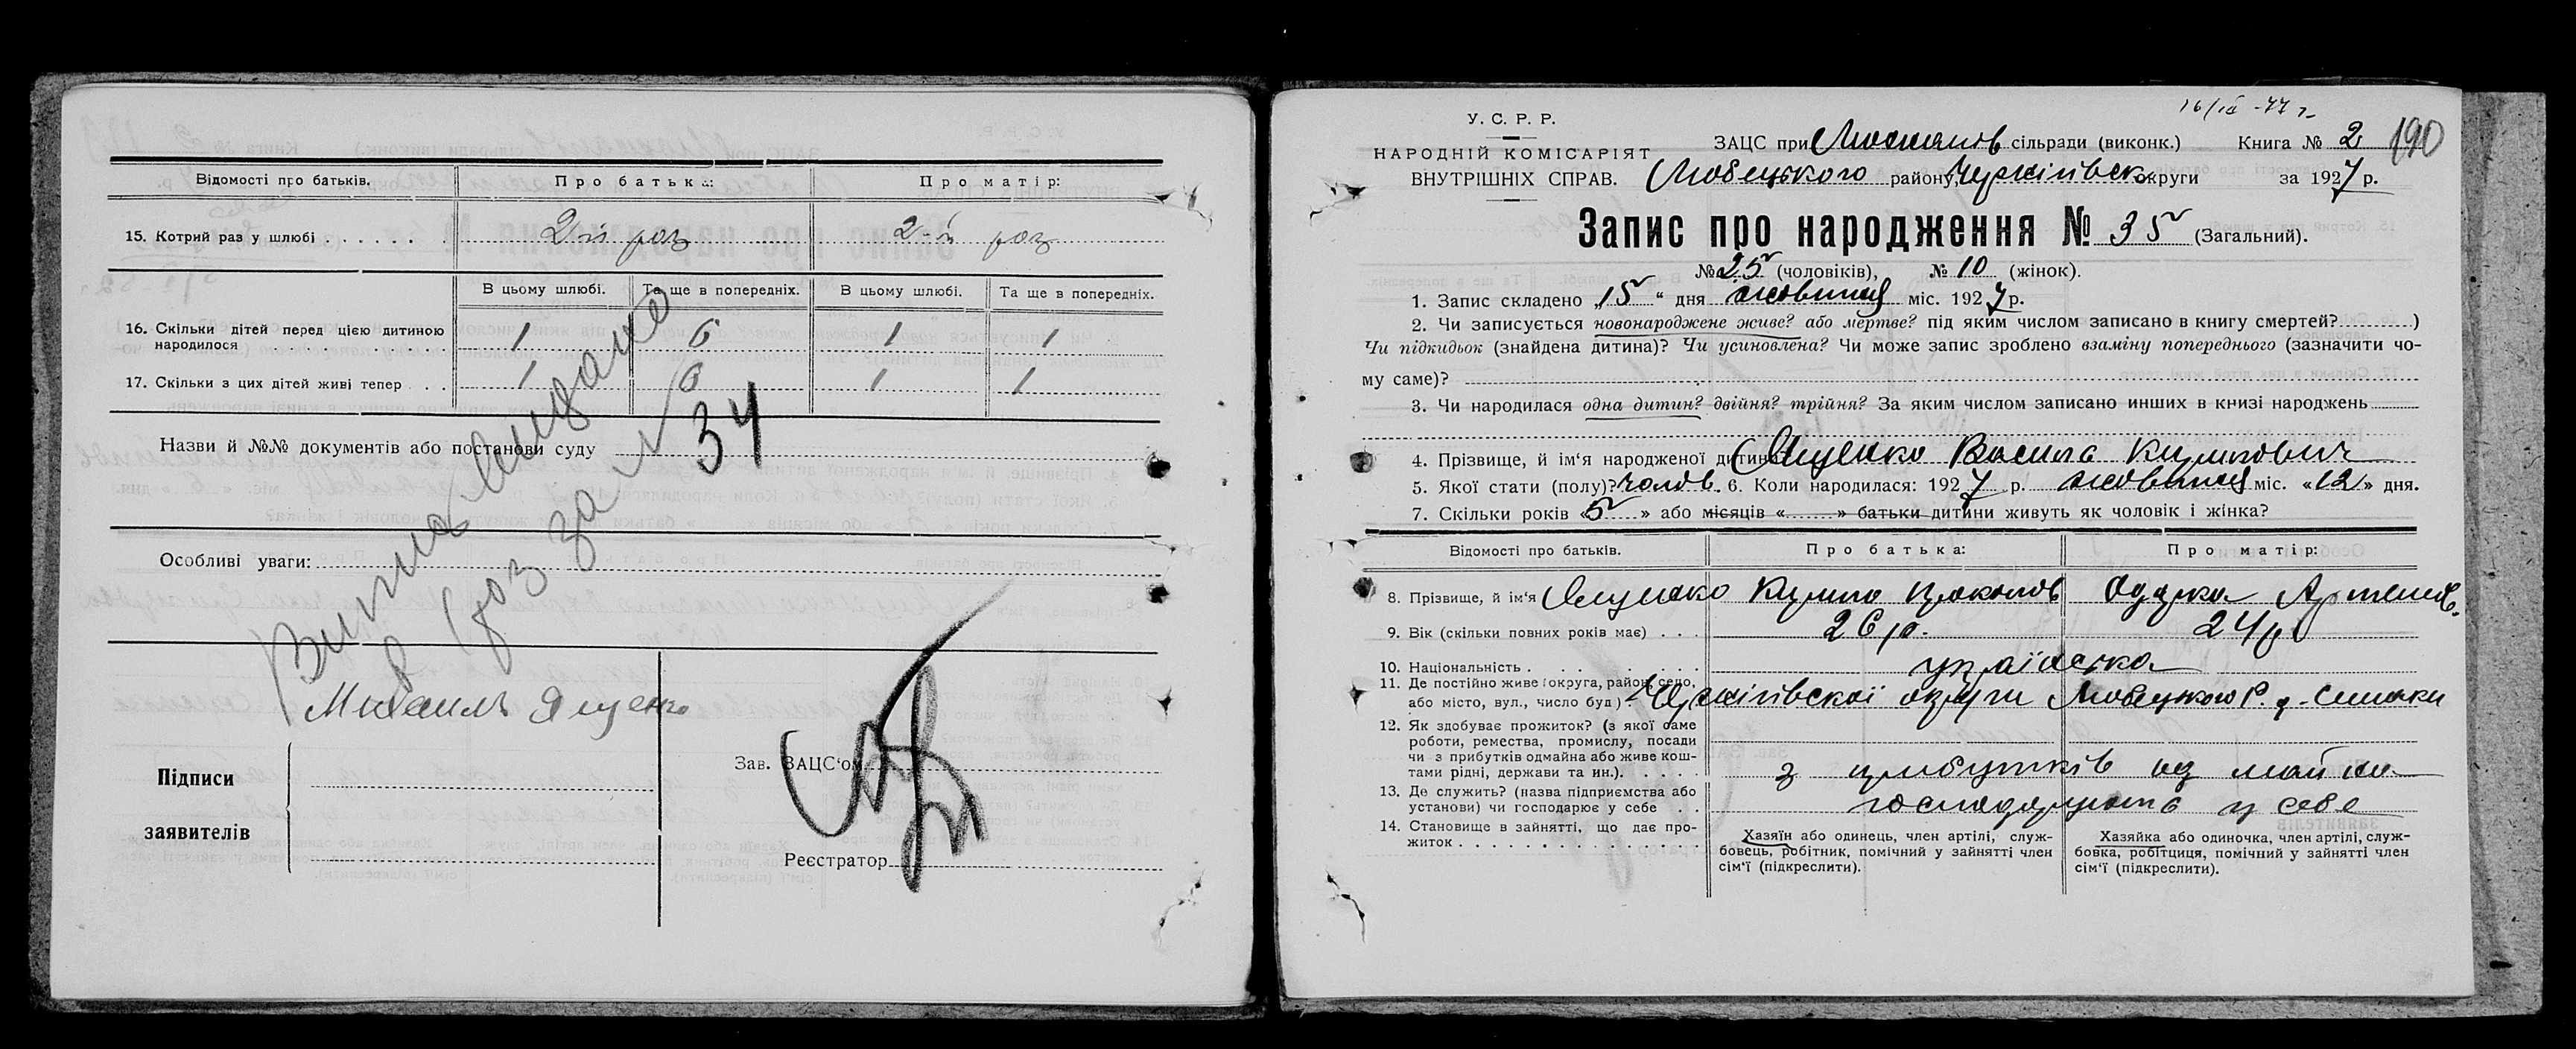 Відомості про батьків. Про батька: Про матір:
15. Котрий раз у шлюбі . . . . . . . 2й раз 2-й раз
В цьому шлюбі. Та ще в попередніх. В цьому шлюбі. Та ще в попередніх.
16. Скільки дітей перед цією дитиною
народилося 1 6 1 1
17. Скільки з цих дітей живі тепер . . . 1 6 1 1
Назви й №№ документів або постанови суду
34
Особливі уваги:
раз за №
Михаил Ященко
Підписи
заявителів
Зав. ЗАЦС'ом
Реєстратор
190
У. С. Р. Р.
НАРОДНІЙ КОМІСАРІЯТ
ВНУТРІШНІХ СПРАВ.
ЗАЦС при сільради (виконк.) Книга № 2
Любецького району, Чернігівськ округи за 1927 р.
Запис про народження № 35 (Загальний).
№ 25 (чоловіків), № 10 (жінок).
1. Запис складено „15“ дня жовтня міс. 1927 р.
2. Чи записується новонароджене живе? або мертве? під яким числом записано в книгу смертей? )
Чи підкидьок (знайдена дитина)? Чи усиновлена? Чи може запис зроблено взаміну попереднього (зазначити чо-
му саме)?
3. Чи народилася одна дитин? двійня? трійня? За яким числом записано инших в книзі народжень
4. Прізвище, й ім'я народженої дитини Ященко Василь Кирилович
5. Якої стати (полу)? чолов. 6. Коли народилася: 1927 р. жовтня міс. «12» дня.
7. Скільки років «5» або місяців « » батьки дитини живуть як чоловік і жінка?
Відомості про батьків. Про батька: Про матір:
8. Прізвище, й ім'я Ященко Кирило Прокопов Одарка Артемов.
9. Вік (скільки повних років має) . . . 26 р. 24 р
10. Національність . . . . . . українська
11. Де постійно живе (округа, район, село,
або місто, вул., число буд) Чернігівської округи Любецького Р.
12. Як здобуває прожиток? (з якої саме
роботи, ремества, промислу, посади
чи з прибутків одмайна або живе кош-
тами рідні, держави та ин.). . . . . з прибутків од майна
13. Де служить? (назва підприємства або
установи) чи господарює у себе . . господарюють у себе
14. Становище в зайнятті, що дає про-
житок . . . . . . . . . . . . . . .
Хазяїн або одинець, член артілі, служ-
бовець, робітник, помічний у зайнятті член
сім'ї (підкреслити).
Хазяйка або одиночка, член артілі, служ-
бовка, робітциця, помічний у зайнятті член
сім'ї (підкреслити).